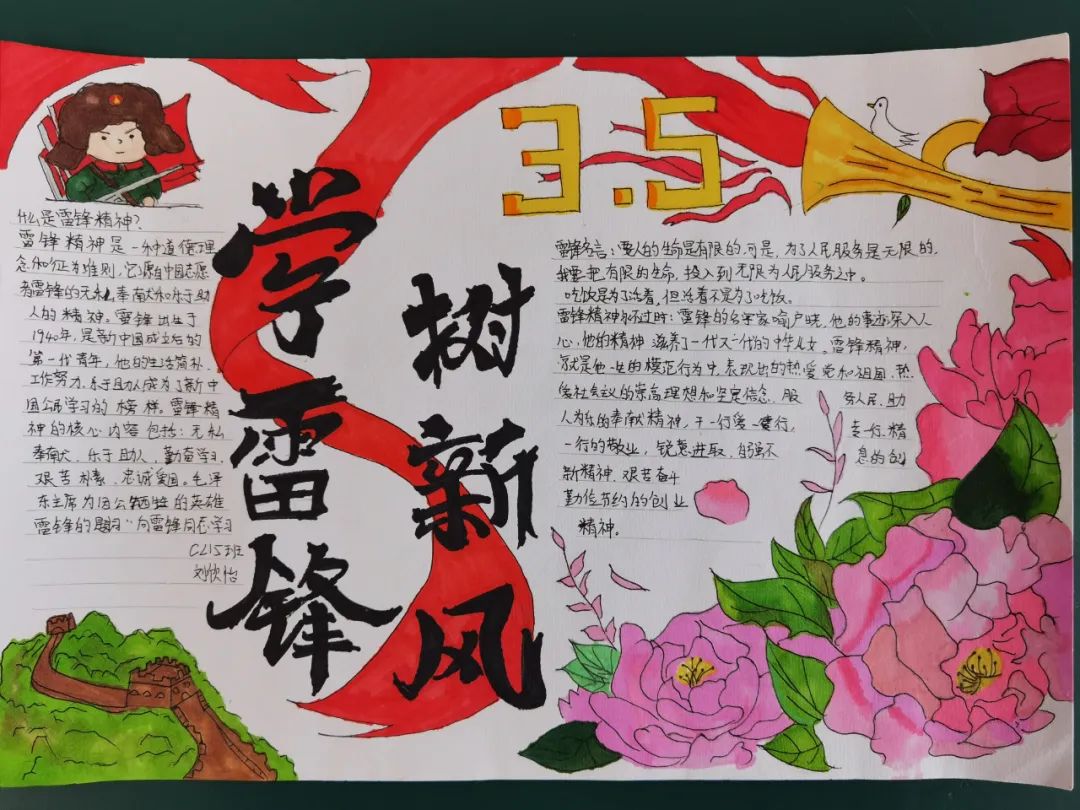 3.5
学雷锋
树新风
什么是雷锋精神?
雷锋精神是一种道德理
念和行为准则,它源自中国志愿
者雷锋的无私奉献和乐于助
人的精神。雷锋出生于
1940年,是新中国成立后的
第一代青年,他的生活简朴、
工作努力、乐于助人成为了新中
国公民学习的榜样。雷锋精
神的核心内容包括:无私
奉献、乐于助人、勤奋学习、
艰苦朴素、忠诚爱国。毛泽
东主席为因公牺牲的英雄
雷锋的题词“向雷锋同志学习
C215班
刘欣怡
雷锋名言:人的生命是有限的,可是,为了人民服务是无限的,
我要把有限的生命,投入到无限为人民服务之中。
吃饭是为了活着,但活着不是为了吃饭。
雷锋精神不过时:雷锋的名字家喻户晓,他的事迹深入人
心,他的精神滋养了一代又一代的中华儿女。雷锋精神,
就是他一生的模范行为中,表现出的热爱党和祖国,热
爱社会议的崇高理想和坚定信念,服务人民、助
人为乐的奉献精神,干一行爱一行,专一行精
一行的敬业,锐意进取、自强不息的创
新精神,艰苦奋斗
勤俭节约的创业
精神。